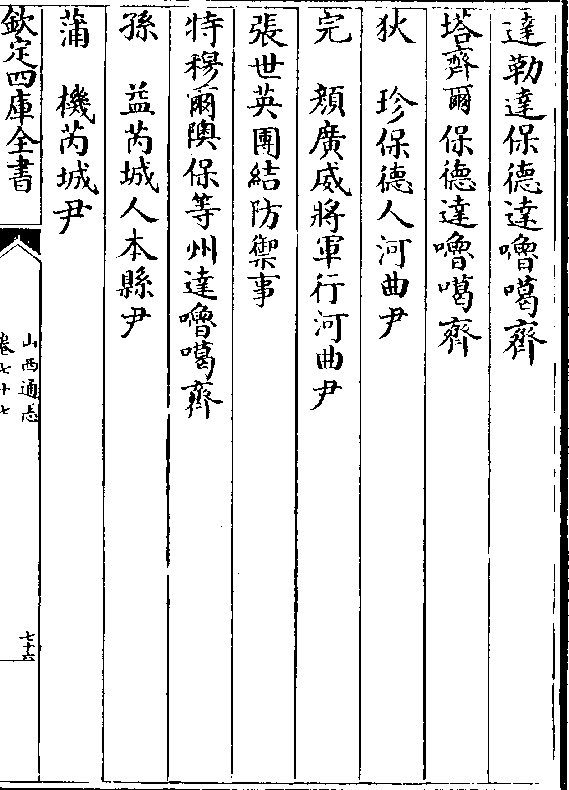 達勒達保德達嚕噶齊
塔齊爾保德達嚕噶齊
狄　珍保德人河曲尹
完　顔廣威將軍行河曲尹
張世英團結防禦事
特穆爾隩保等州達嚕噶齊
孫　益芮城人本縣尹
蒲　機芮城尹
欽定四庫全書
山西通志
卷七十七
七十六